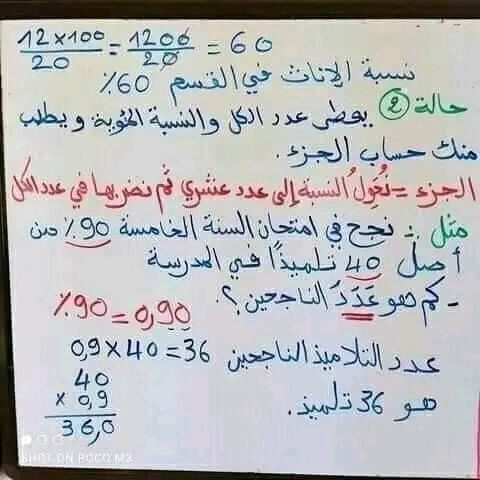 12×100/20 = 1200/20 = 60
نسبة الإناث في القسم 60٪
حالة ② يعطى عدد الكل والنسبة المئوية ويطلب
منك حساب الجزء.
الجزء = نُحَوِّلُ النسبة إلى عدد عشري ثم نضربها في عدد الكل
مثل :- نجح في امتحان السنة الخامسة 90٪ من
أصل 40 تلميذًا في المدرسة
- كم هو عَدَدُ الناجحين ؟.
٪90 = 0,90
عدد التلاميذ الناجحين 0,9 × 40 = 36
هو 36 تلميذ.
40
× 0,9
36,0
SHOT ON POCO M3